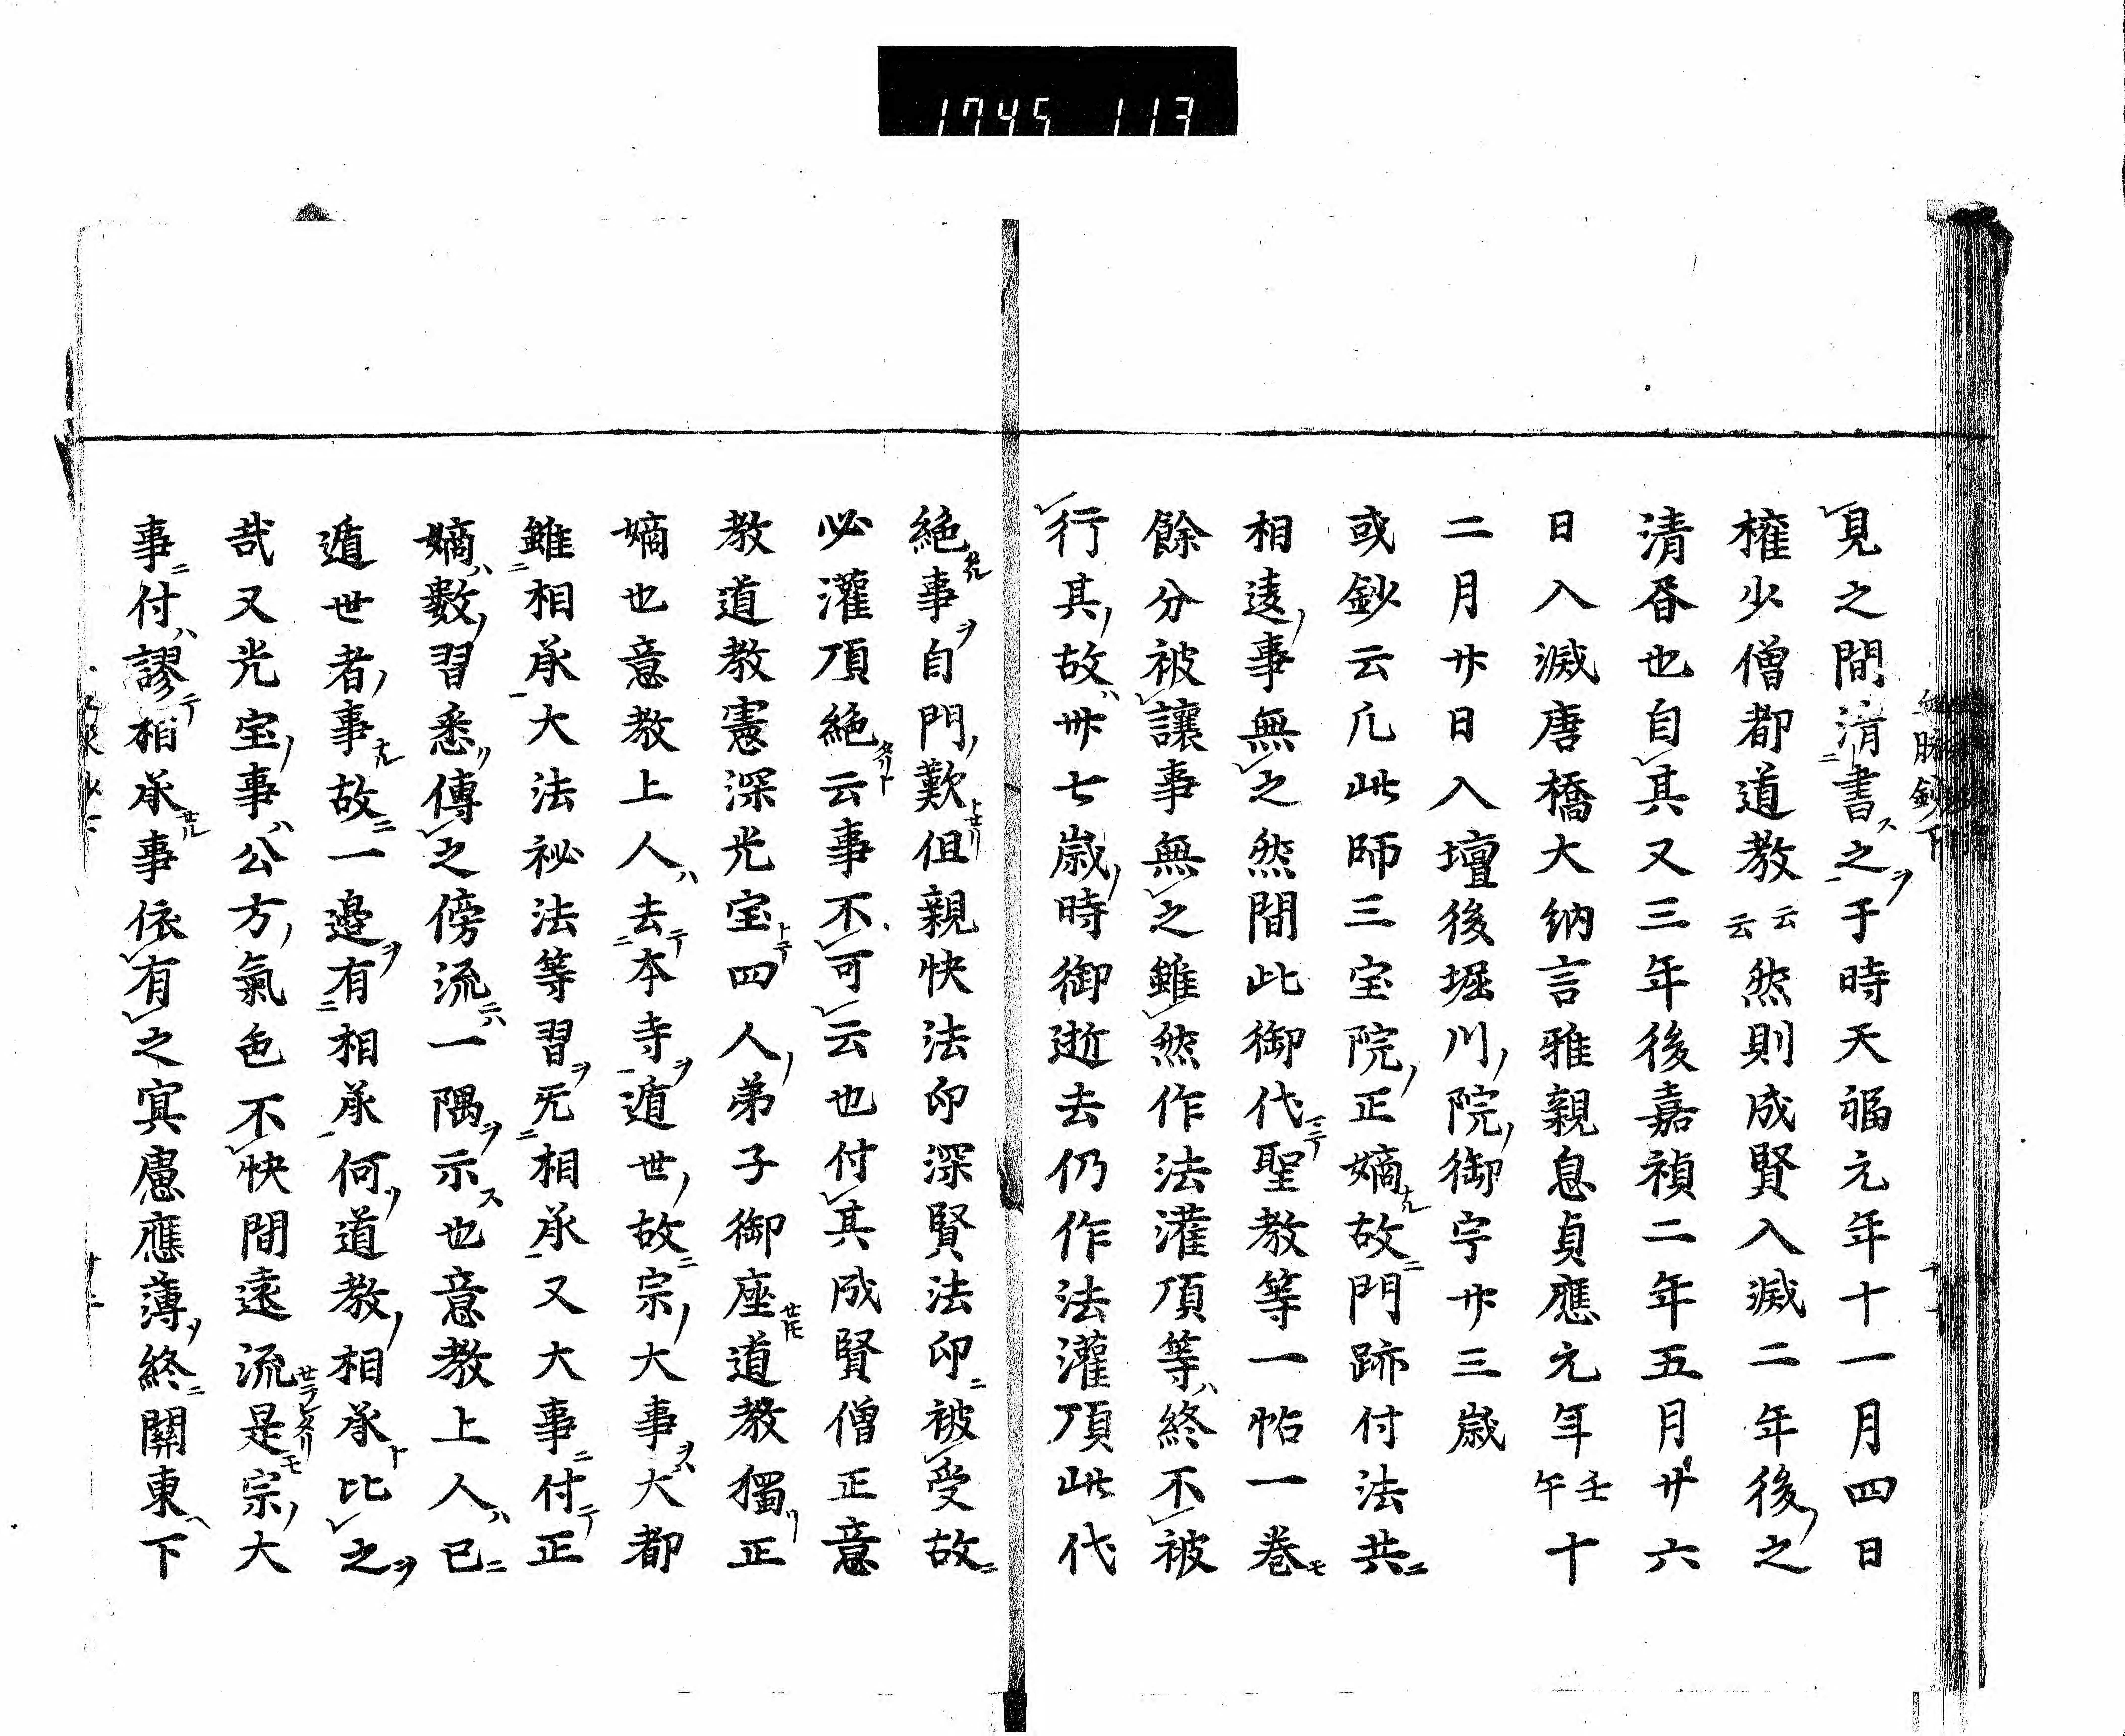 1745 113
見之間清書之于時天福元年十一月四日
権少僧都道教云云然則成賢入滅二年後之
清昏也自其又三年後嘉禎二年五月廿六
日入滅唐橋大納言雅親息貞應元年壬午十
二月廿日入壇後堀川院御宇廿三歳
或鈔云凡此師三宝院正嫡故門跡付法共
相違事無之然間此御代聖教等一帖一巻
餘分被讓事無之雖然作法灌頂等終不被
行其故卅七歳時御逝去仍作法灌頂此代
絶事自門歎但親快法印深賢法印被受故
必灌頂絶云事不可云也付其成賢僧正意
教道教憲深光宝四人弟子御座道教獨正
嫡也意教上人去本寺遁世故宗大事大都
雖相承大法祕法等習旡相承又大事付正
嫡數習悉傳之傍流一隅示也意教上人已
遁世者事故一邉有相承何道教相承比之
哉又光宝事公方氣色不快間遠流是宗大
事付謬相承事依有之冥慮應薄終關東下
血脉鈔下